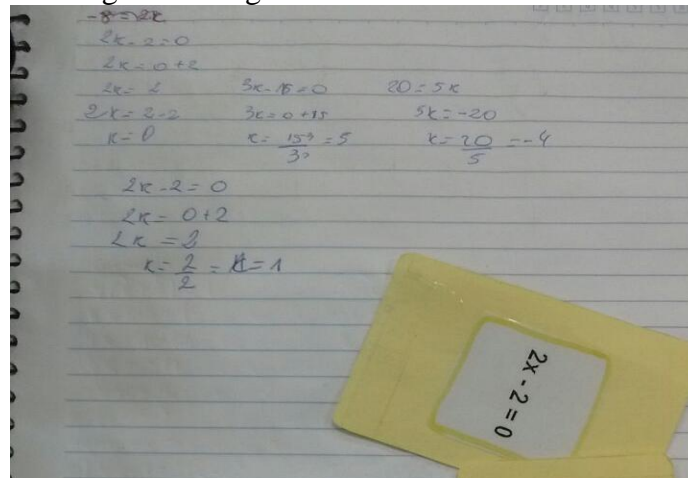 -8=2x
2x-2=0
2x=0+2
2x= 2
2x=2-2
x=0
3x-15=0
3x=0+15
x= 15/3 =5
20=5x
5x=-20
x= 20/5 =-4
2x-2=0
2x= 0+2
2x =2
x= 2/2 = x=1
2x-2=0